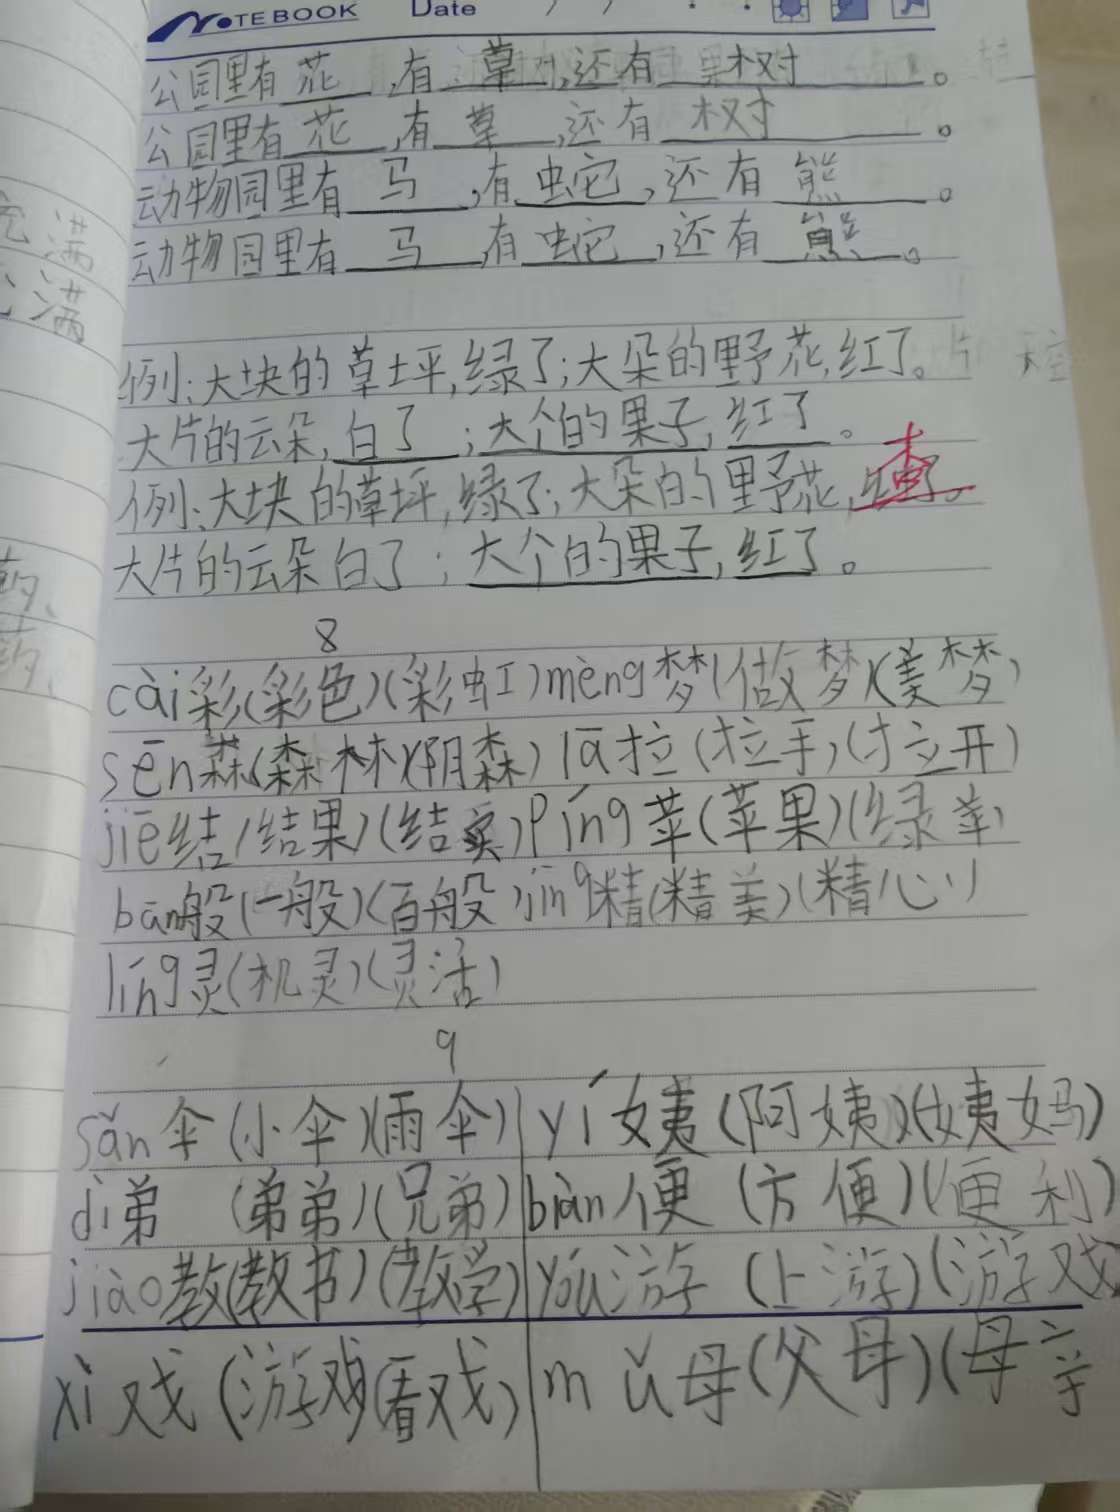 NOTEBOOK Date
公园里有花,有草,还有树。
公园里有花,有草,还有树。
动物园里有马,有蛇,还有熊。
动物园里有马 有蛇,还有熊。
例:大块的草坪,绿了;大朵的野花,红了。
大片的云朵,白了;大个的果子,红了。
例:大块的草坪,绿了;大朵的野花,
大片的云朵白了;大个的果子,红了。
8
cài彩(彩色)(彩虹)mèng梦(做梦)(美梦)
sēn森(森林)(阴森)lā拉(拉手)(拉开)
jiē结(结果)(结实)píng苹(苹果)(绿苹)
bān般(一般)(百般)jīng精(精美)(精心)
líng灵(机灵)(灵活)
9
sǎn伞(小伞)(雨伞) yí姨(阿姨)(姨妈)
dì弟(弟弟)(兄弟) biàn便(方便)(便利)
jiào教(教书)(教学) yóu游(上游)(游戏
xì戏(游戏)(看戏) mǔ母(父母)(母亲
充满
满
查